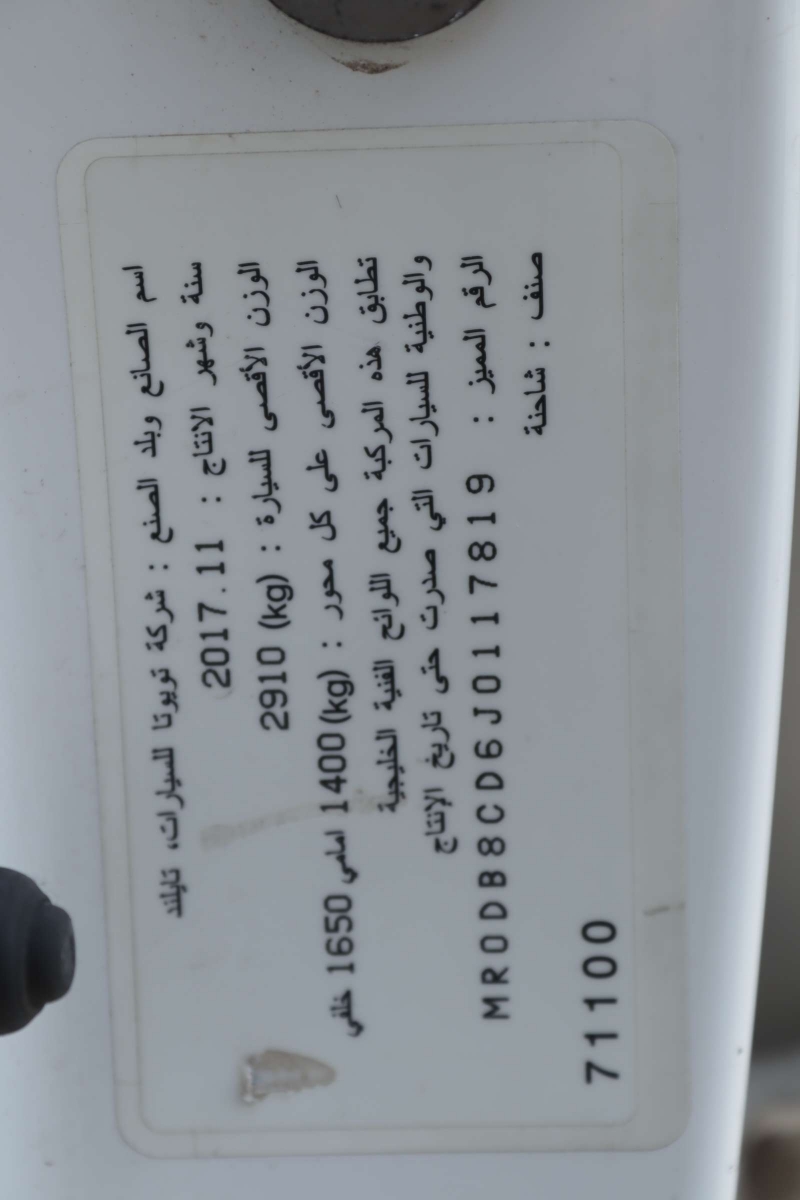 اسم الصانع وبلد الصنع : شركة تويوتا للسيارات، تايلند
سنة وشهر الانتاج : 2017.11
الوزن الأقصى للسيارة : (kg) 2910
الوزن الأقصى على كل محور : (kg) 1400 امامي 1650 خلفي
تطابق هذه المركبة جميع اللوائح الفنية الخليجية
والوطنية للسيارات التي صدرت حتى تاريخ الإنتاج
الرقم المميز : MR0DB8CD6J0117819
صنف : شاحنة
71100